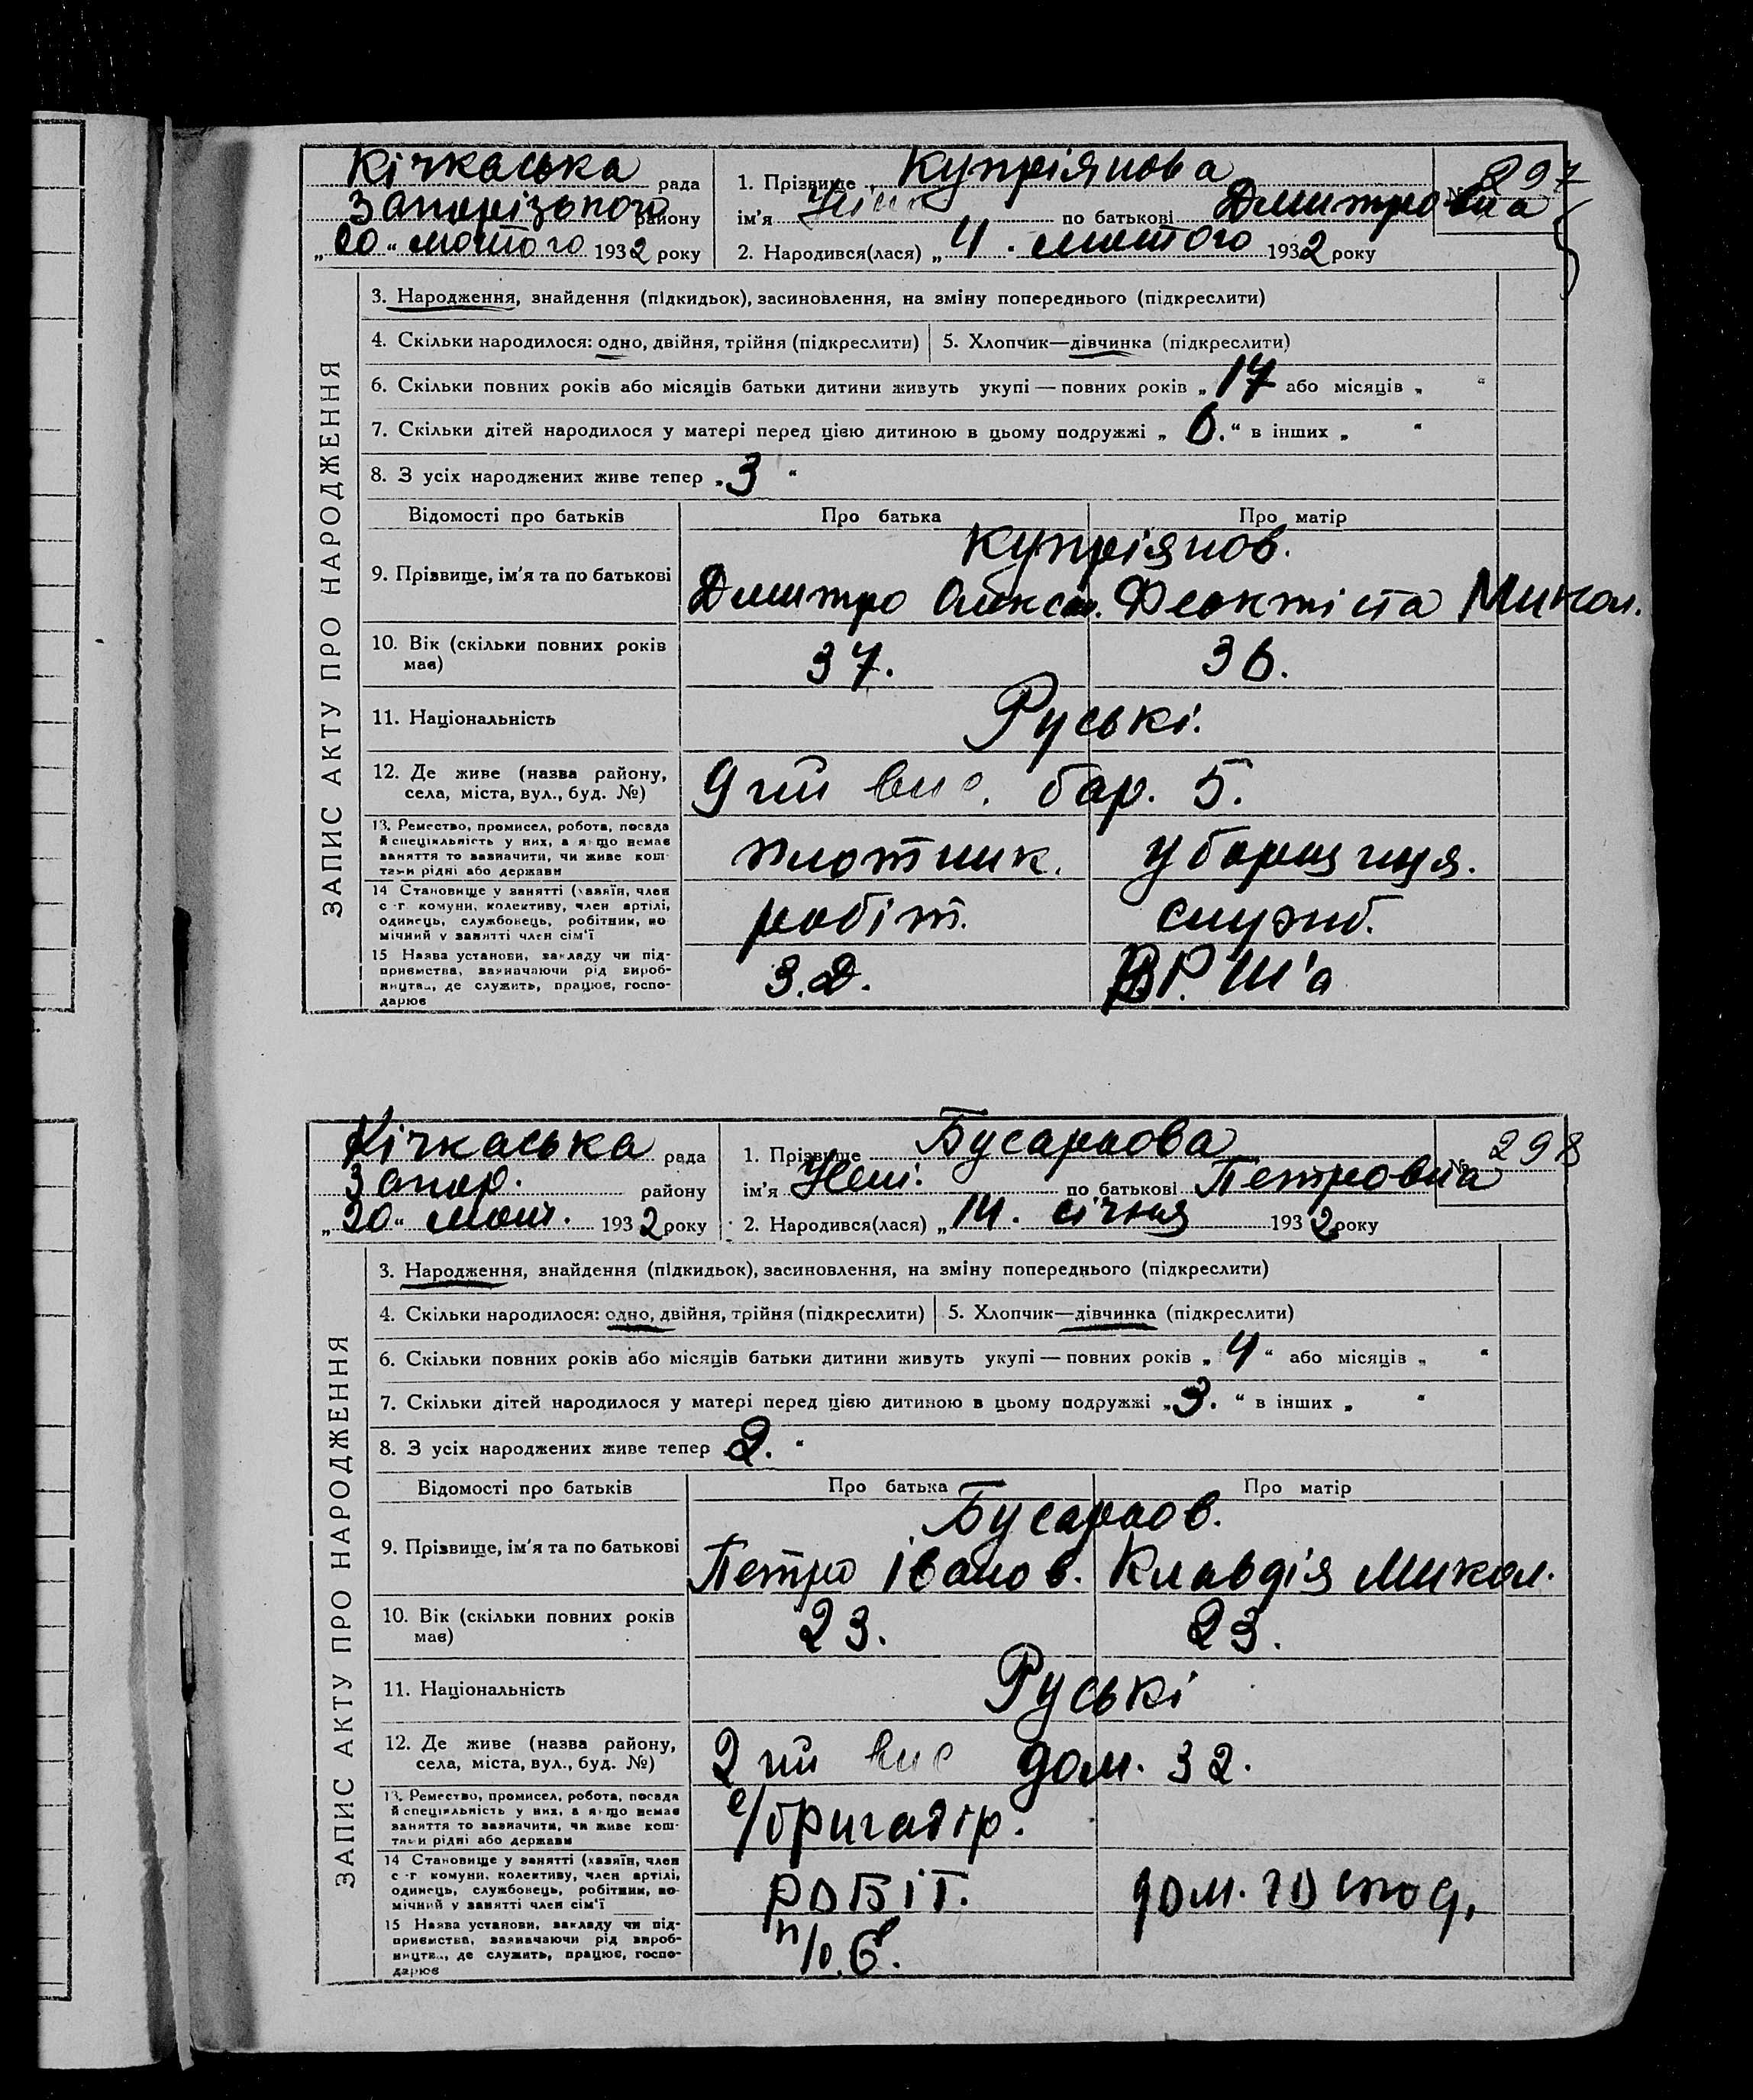 Кічкаська рада
Запорізького району
„20“ лютого 1932 року
1. Прізвище Купріянова
ім'я по батькові Дмитровна
2. Народився(лася) „4. лютого 1932 року
№ 297
ЗАПИС АКТУ ПРО НАРОДЖЕННЯ
3. Народження, знайдення (підкидьок), засиновлення, на зміну попереднього (підкреслити)
4. Скільки народилося: одно, двійня, трійня (підкреслити)
5. Хлопчик—дівчинка (підкреслити)
6. Скільки повних років або місяців батьки дитини живуть укупі — повних років „17 або місяців „ “
7. Скільки дітей народилося у матері перед цією дитиною в цьому подружжі „6.“ в інших „ “
8. З усіх народжених живе тепер „3 “
Відомості про батьків Про батька Про матір
Купріянов.
9. Прізвище, ім'я та по батькові Дмитро Олекса. Феоктіста Микол.
10. Вік (скільки повних років 37. 36.
має)
11. Національність Руські.
12. Де живе (назва району, 9 ий вис. бар. 5.
села, міста, вул., буд. №)
13. Ремество, промисел, робота, посада
й спеціяльність у них, а якщо немає плотник. уборщиця.
заняття то зазначити, чи живе кош-
тами рідні або держави
14 Становище у занятті (хазяїн, член
с.-г. комуни, колективу, член артілі, робіт. служб.
одинець, службовець, робітник, по-
мічний у занятті член сім'ї
15 Назва установи, закладу чи під-
приємства, зазначаючи рід вироб- З.Д. Ш'а
ництва, де служить, працює, госпо-
дарює
Кічкаська рада
Запор. району
„20“ лют. 1932 року
1. Прізвище
ім'я по батькові Петровна
2. Народився(лася) „14. січня 1932 року
№ 298
ЗАПИС АКТУ ПРО НАРОДЖЕННЯ
3. Народження, знайдення (підкидьок), засиновлення, на зміну попереднього (підкреслити)
4. Скільки народилося: одно, двійня, трійня (підкреслити)
5. Хлопчик—дівчинка (підкреслити)
6. Скільки повних років або місяців батьки дитини живуть укупі — повних років „4“ або місяців „ “
7. Скільки дітей народилося у матері перед цією дитиною в цьому подружжі „3. “ в інших „ “
8. З усіх народжених живе тепер 2. “
Відомості про батьків Про батька Про матір
9. Прізвище, ім'я та по батькові Петро Іванов. Клавдія Микол.
10. Вік (скільки повних років 23. 23.
має)
11. Національність Руські
12. Де живе (назва району, 2 ий вис дом. 32.
села, міста, вул., буд. №)
13. Ремество, промисел, робота, посада
й спеціяльність у них, а якщо немає бригадір.
заняття то зазначити, чи живе кош-
тами рідні або держави
14 Становище у занятті (хазяїн, член
с.-г. комуни, колективу, член артілі, робіт. дом. господ.
одинець, службовець, робітник, по-
мічний у занятті член сім'ї
15 Назва установи, закладу чи під-
приємства, зазначаючи рід вироб-
ництва, де служить, працює, госпо-
дарює